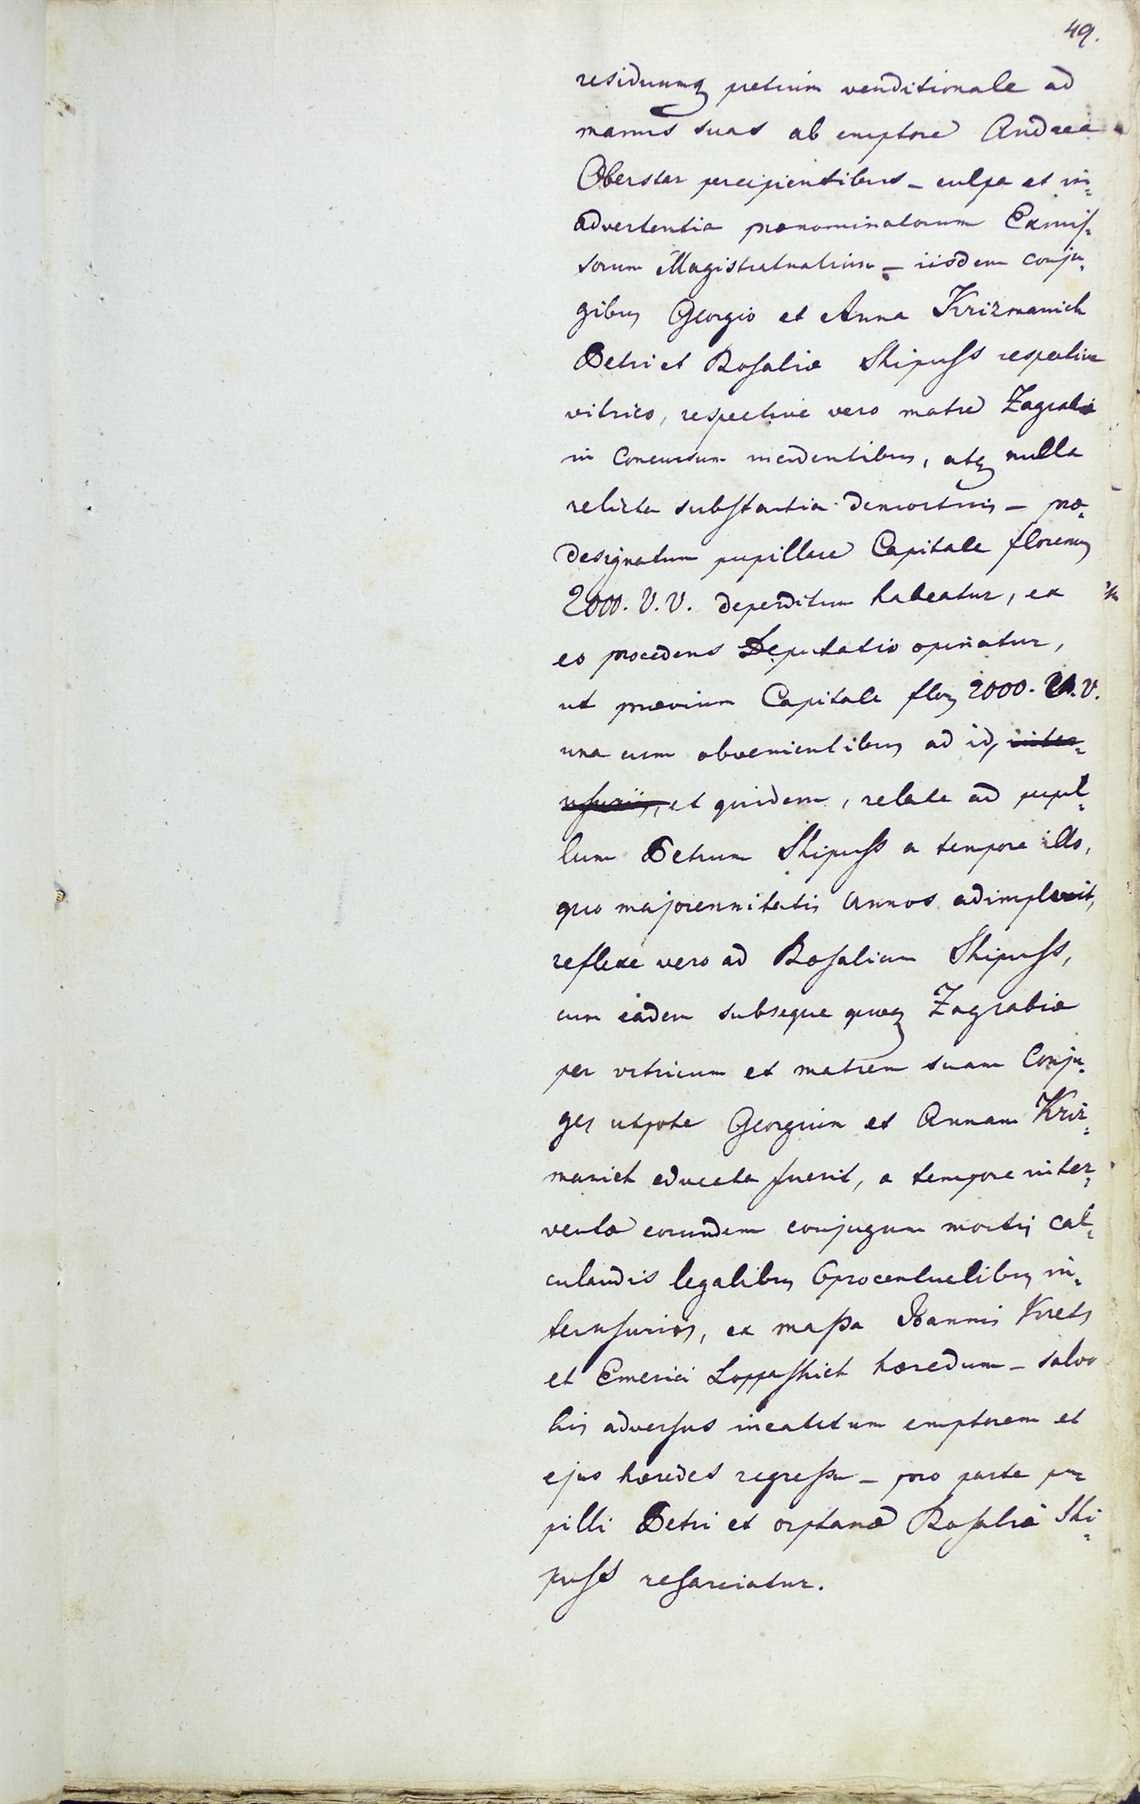 49.
residuumq pretium venditionale ad
manus suas ab emptore Andrea
Oberster percipientibus – culpa et in=
advertentia prænominatorum Exmis=
sorum Magistratualium – iisdem conju=
gibus Georgio et Anna Krizmanich
Petri et Rosaliæ Shipuss respective
vitrico, respective vero matre Zagrabiæ
in Concursum incidentibus, atq nulla
relicta substantia demortuis – præ=
designatum pupillare Capitale florenor
2000. V.V. deperditum habeatur, ex
eo procedens Deputatio opinatur,
ut prævium Capitale flor 2000. V.V.
una cum obvenientibus ad id, inter=
usuriis, et quidem, relate ad pupil=
lum Petrum Shipuss a tempore illo,
quo majorennitatis annos adimplevit,
reflexe vero ad Rosaliam Shipuss,
cum eadem subseque quoq Zagrabiæ
per vitricum et matrem suam Conju=
ges utpote Georgium et Annam Kriz=
manich educata fuerit, a tempore inter=
ventæ eorundem conjugum mortis cal=
culandis legalibus 6procentualibus in=
terusuriis, ex massa Joannis Krets
et Emerici Loppashich hæredum – salvo
his adversus incattum emptorem et
ejus hæredes regressu – pro parte pu=
pilli Petri et orphanæ Rosaliæ Shi=
puss resarciatur.